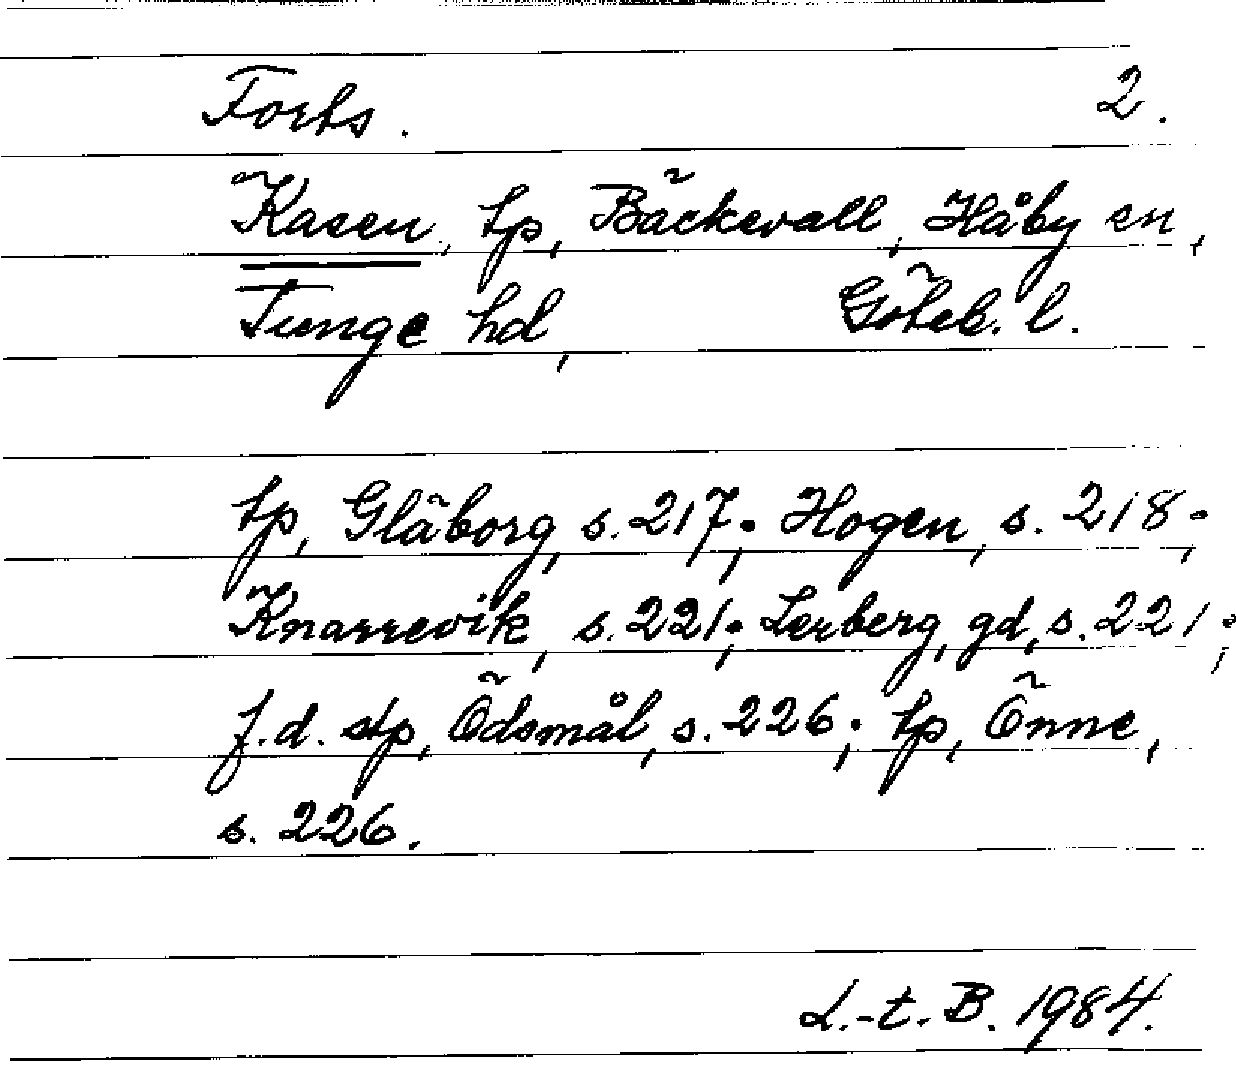 Forts. 2.
Kasen, tp, Bäckevall, Håby sn,
Tunge hd, Göteb. l.
tp, Gläborg, s. 217; Hogen, s. 218;
Knarrevik, s. 221; Lerberg, gd, s. 221;
f.d. stp, Ödsmål, s. 226; tp, Önne,
s. 226.
L.-t. B. 1984.